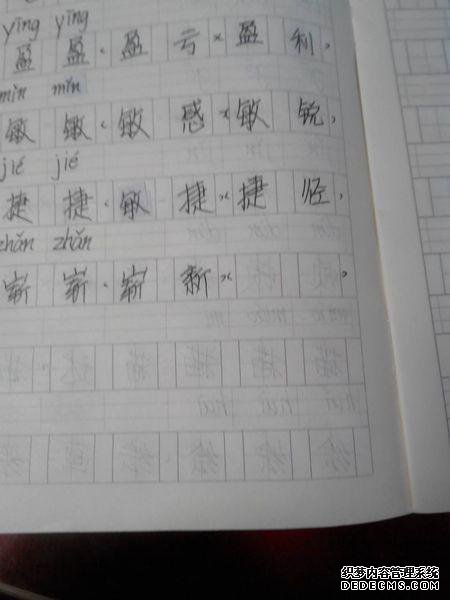 yīng yīng
盈 盈、盈 亏 x 盈 利,
mǐn mǐn
敏 敏、敏 感 x 敏 锐,
jié jié
捷 捷、敏 捷 x 捷 径,
zhǎn zhǎn
崭 崭、崭 新 x ,
织梦内容管理系统
DEDECMS.COM